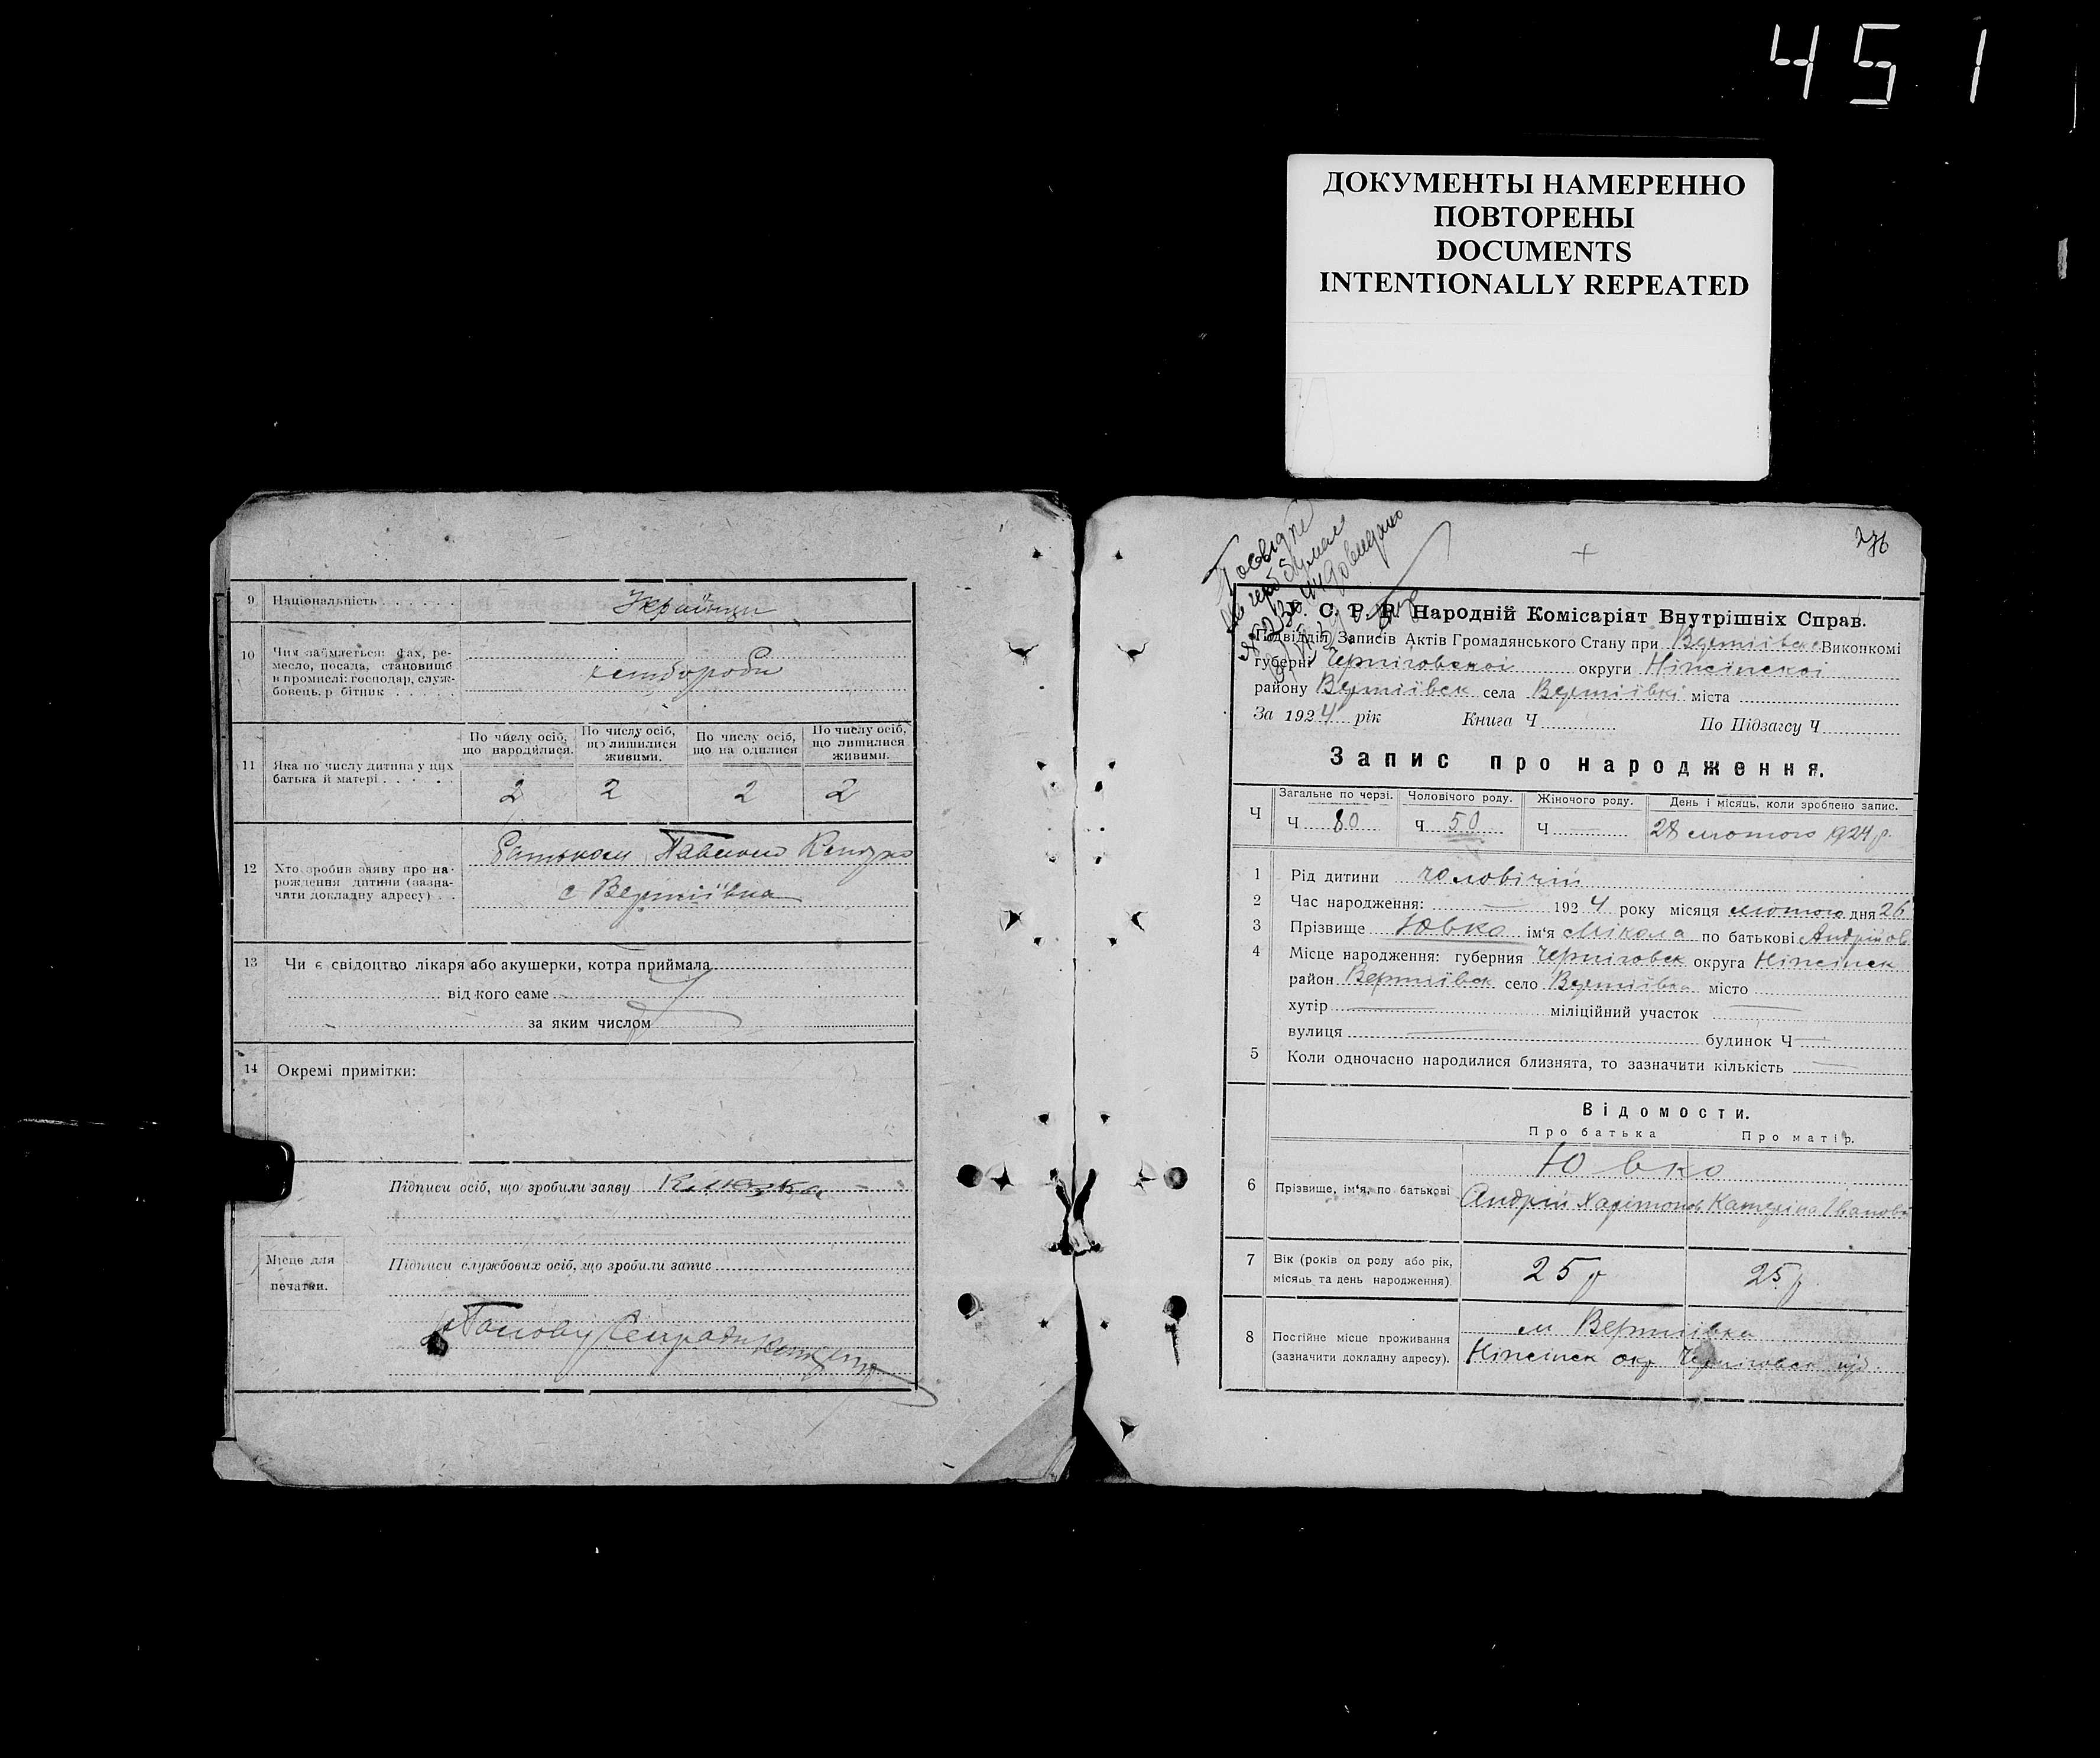 451
ДОКУМЕНТЫ НАМЕРЕННО
ПОВТОРЕНЫ
DOCUMENTS
INTENTIONALLY REPEATED
9 Національність Українці
10 Чим займається: фах, ре-
месло, посада, становищé
в промислі: господар, служ-
бовець, р бітник
хлібороби
По числу осіб, що народилися.
По числу осіб, що лишилися живими.
По числу осіб, що на одилися
По числу осіб, що лишилися живими.
11 Яка по числу дитина у цих
батька й матері
2 2 2 2
12 Хто зробив заяву про на-
рождення дитини (зазна-
чити докладну адресу)
Батьком Павлом
с Вертіївка
13 Чи є свідоцтво лікаря або акушерки, котра приймала
від кого саме
за яким числом
14 Окремі примітки:
Підписи осіб, що зробили заяву
Місце для
печатки.
Підписи службових осіб, що зробили запис
236
С. Р. Р. Народній Комісаріят Внутрішніх Справ.
Підвідділ Записів Актів Громадянського Стану при Вертіївск Виконкомі
губерні Черніговскоі округи Ніжінскоі
району Вертіївск села Вертіївкі міста
За 1924 рік Книга Ч По Підзагсу Ч
Запис про народження.
Ч
Загальне по черзі. Чоловічого роду. Жіночого роду. День і місяць, коли зроблено запис.
Ч 80 Ч 50 Ч 28 лютого 1924 р.
1 Рід дитини чоловічій
2 Час народження: 1924 року місяця лютого дня 26
3 Прізвище Ювко ім'я Мікола по батькові Андрійов
4 Місце народження: губерния Черніговск округа Ніжінск
район Вертіївск село Вертіївка місто
хутір міліційний участок
вулиця будинок Ч
5 Коли одночасно народилися близнята, то зазначити кількість
Відомости.
Про батька Про матір.
6 Прізвище, ім'я, по батькові
Ювко
Андрій Харітонов Катеріна Іванова
7 Вік (років од роду або рік,
місяць та день народження)
25 р 25 р
8 Постійне місце проживання
(зазначити докладну адресу).
м Вертіївка
Ніжінск окр Черніговск губ.